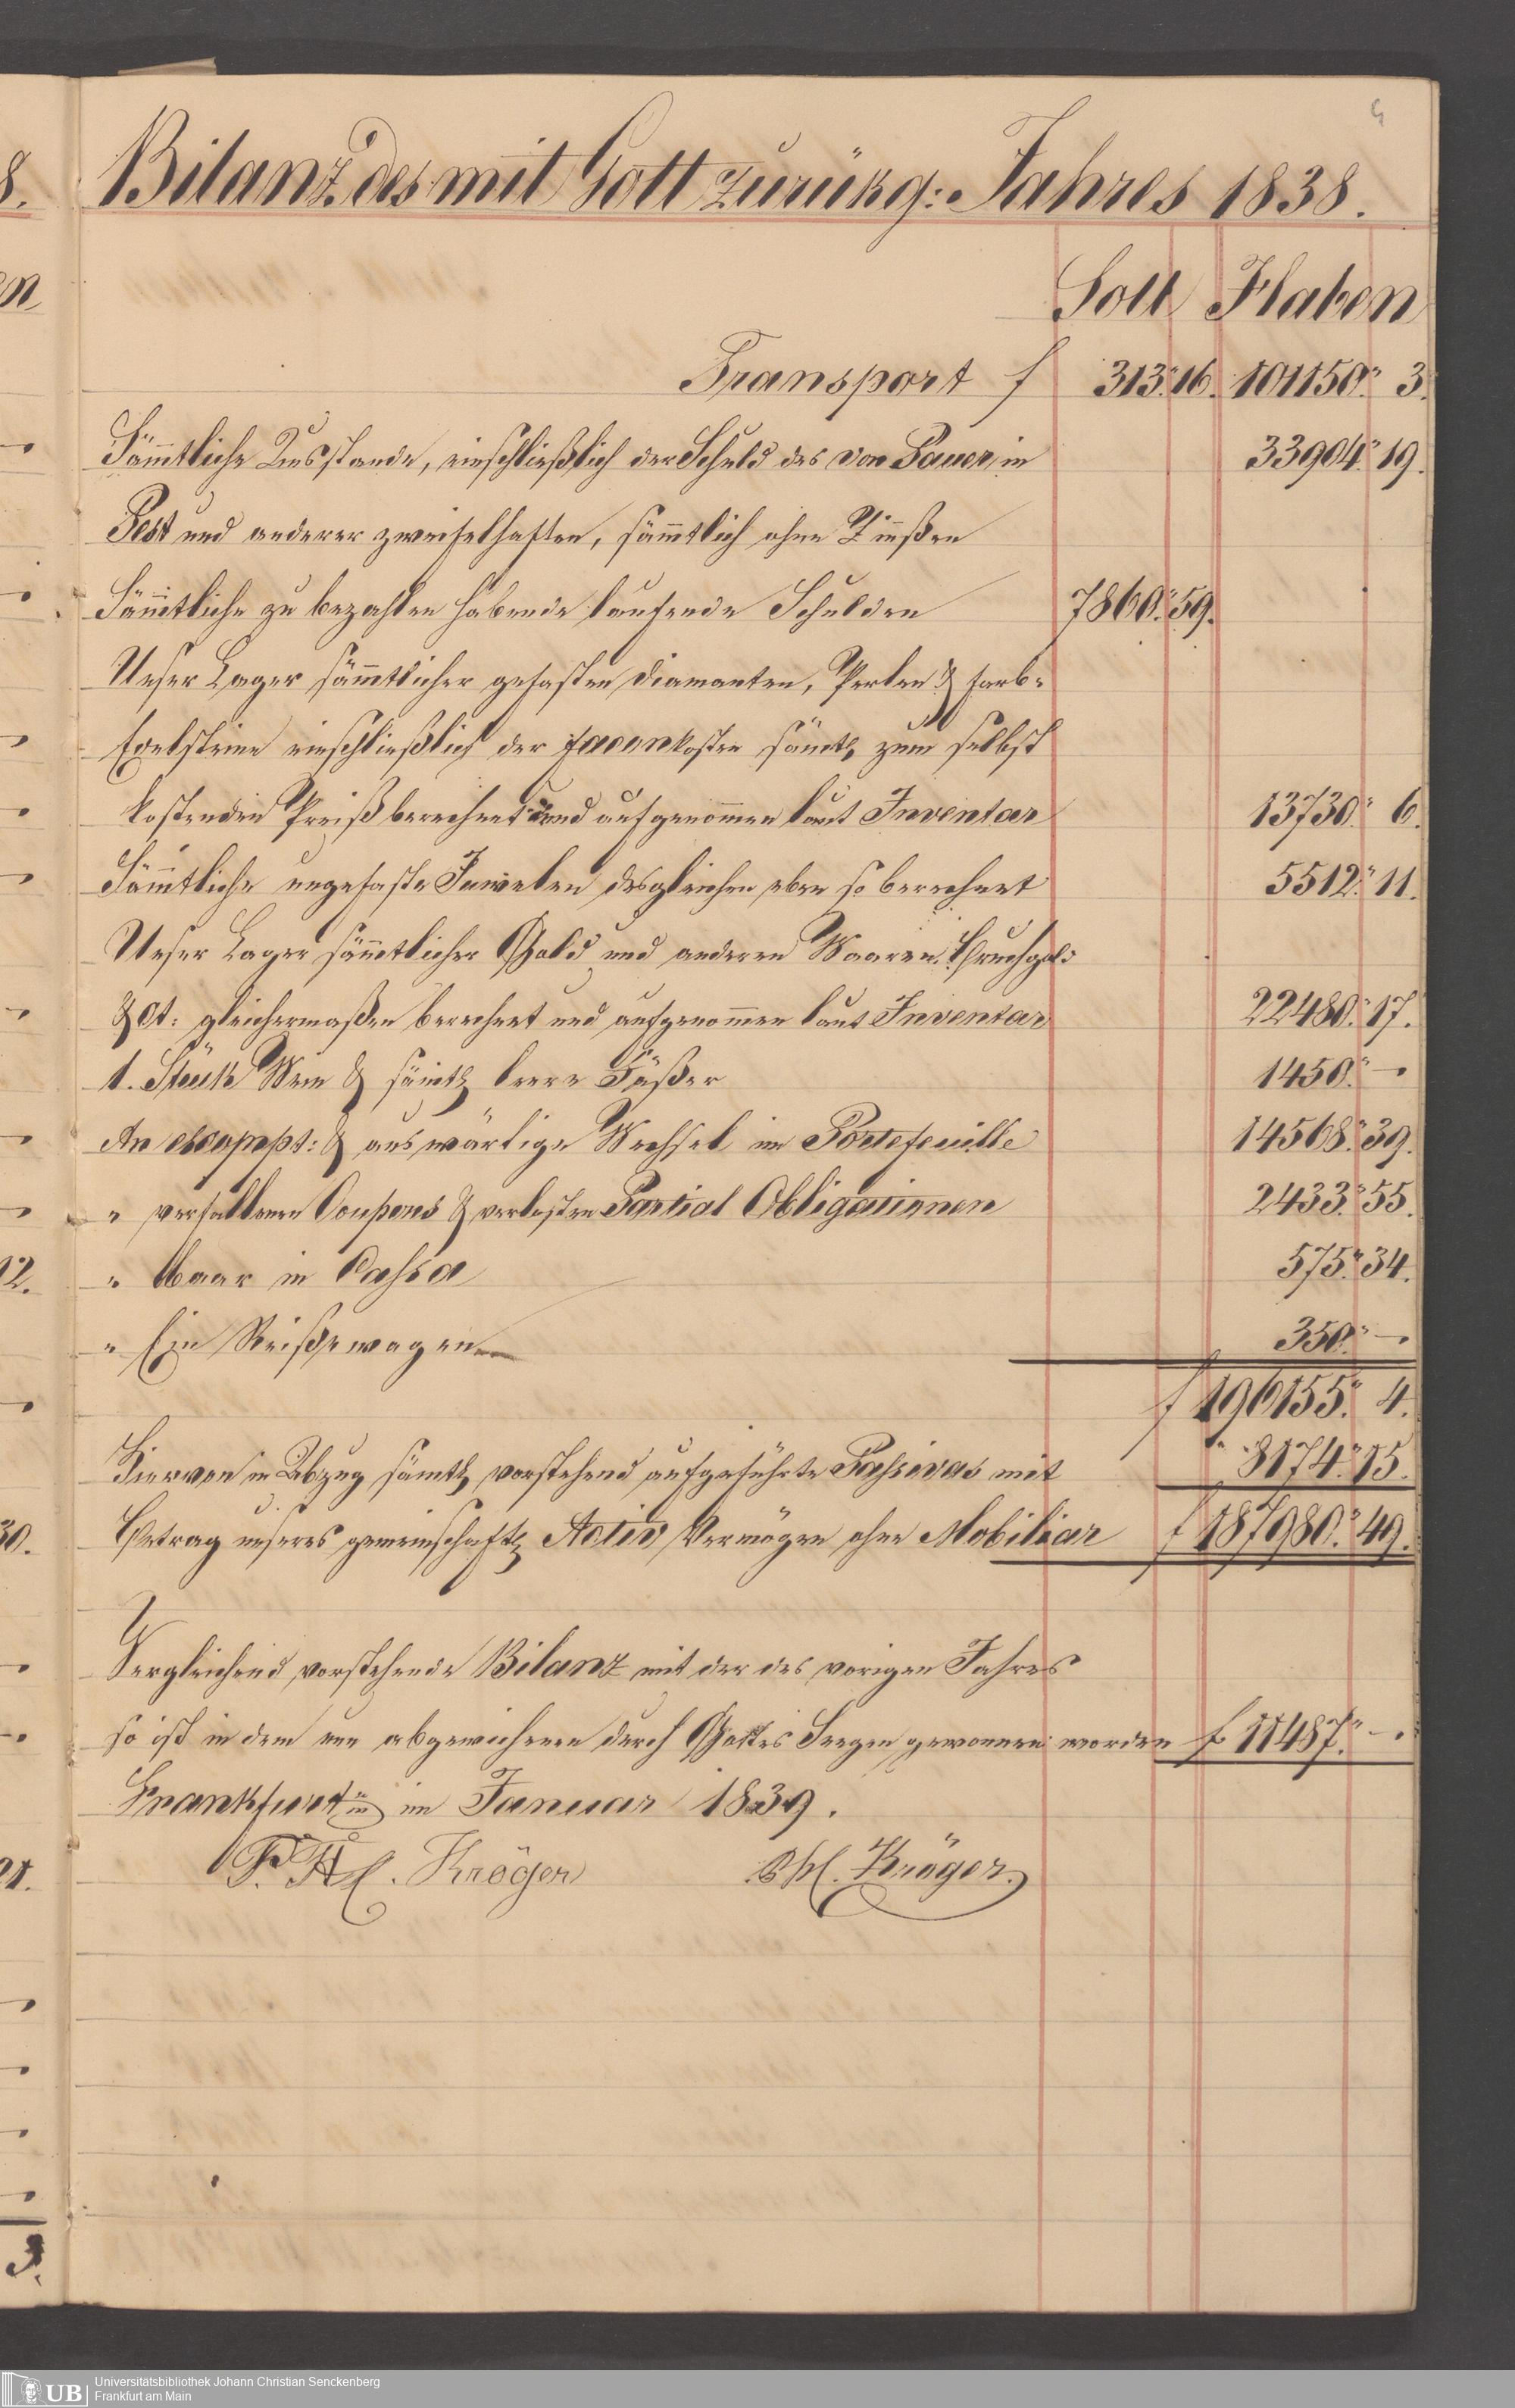 4
Bilanz des mit Gott zurükg: Jahres 1838.
Soll Haben
Transport f 313.″ 16. 101150.″ 3.
Sämtliche Ausstande, einschließlich der Schuld des von Pauer, in 33904.″ 19.
Pest und anderer zweifelhaften, sämtlich ohne Zinßen
Sämtliche zu bezahlen habende laufende Schulden 7860.″ 59.
Unser Lager sämtlicher gefasten Diamanten, Perlen & farb-
Edelsteine einschließlich der faconkosten sämtl zum selbst
kostenden Preiß berechnet und aufgenommen laut Inventar 13730.″ 6.
Sämtliche ungefaste Juwelen desgleichen eben so berechnet 5512.″ 11.
Unser Lager sämtlicher Gold und anderen Waaren, Bruchgold
& ct: gleichermaßen berechnet und aufgenommen laut Inventar 22480.″ 17.
1. Stück Wein & sämtl leere Fäßer 1450.″ —
An escompt: & auswärtige Wechsel im Portefeuille 14568.″ 39.
" verfallenen Coupons & verlosten Partial Obligationen 2433.″ 55.
" baar in Cassa 575.″ 34.
" Ein Reißewagen 350.″ —
f 196155.″ 4.
Hiervon in Abzug sämtl vorstehend aufgeführte Passivas mit " 8174.″ 15.
Betrag unseres gemeinschaftl Activ Vermögen ohne Mobiliar f 187980.″ 49.
Vergleichend vorstehende Bilanz mit der des vorigen Jahres
so ist in dem nun abgewichenen durch Gottes Seegen gewonnen worden f 11487.″ —.
Frankfurt im Januar 1839.
Kröger Kröger
8.
en
12.
30.
21.
3.
UB Universitätsbibliothek Johann Christian Senckenberg
Frankfurt am Main